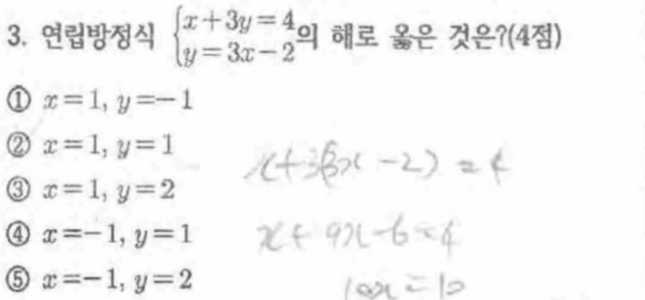 3. 연립방정식 {x+3y=4
y=3x-2 의 해로 옳은 것은?(4점)
① x=1, y=-1
② x=1, y=1
③ x=1, y=2
④ x=-1, y=1
⑤ x=-1, y=2
x+3(3x-2)=4
x+9x-6=4
10x=10